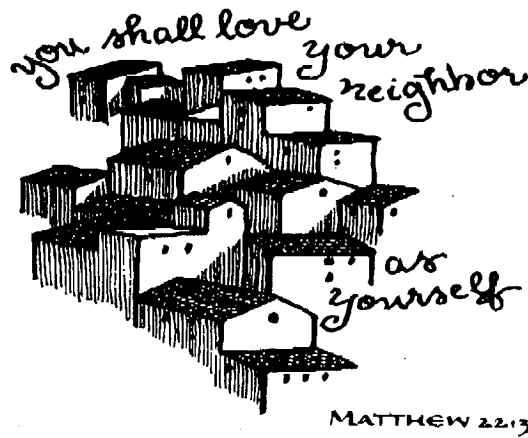 you shall love
your
neighbor
as
yourself
MATTHEW 22:3